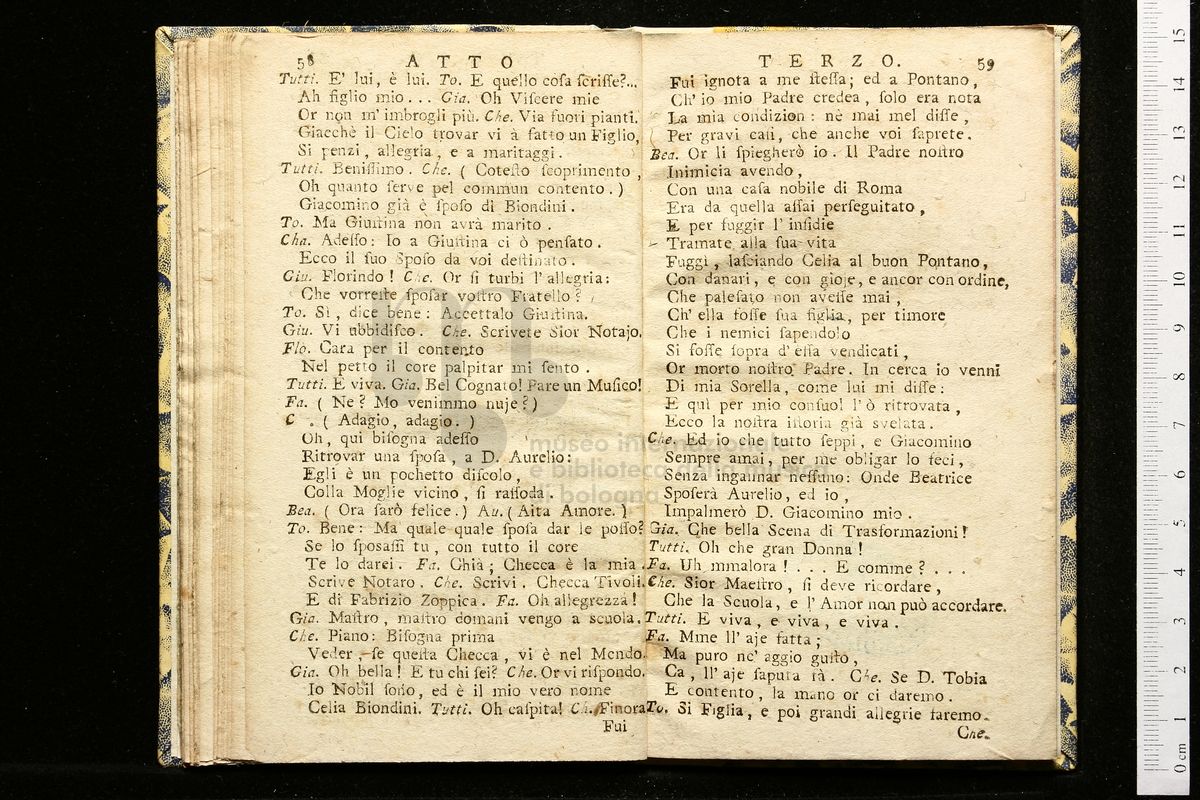 58 ATTO
Tutti. E' lui, è lui. To. E quello cosa scrisse?...
Ah figlio mio... Gia. Oh Viscere mie
Or non m'imbrogli più. Che. Via fuori pianti.
Giacchè il Cielo trovar vi à fatto un Figlio,
Si penzi, allegria, a maritaggi.
Tutti. Benissimo. Che. ( Cotesto scoprimento,
Oh quanto serve pel commun contento. )
Giacomino già è sposo di Biondini.
To. Ma Giustina non avrà marito.
Cha. Adesso: Io a Giustina ci ò pensato.
Ecco il suo Sposo da voi destinato.
Giu. Florindo! Che. Or si turbi l'allegria:
Che vorreste sposar vostro Fratello?
To. Sì, dice bene: Accettalo Giustina.
Giu. Vi ubbidisco. Che. Scrivete Sior Notajo.
Flo. Cara per il contento
Nel petto il core palpitar mi sento.
Tutti. E viva. Gia. Bel Cognato! Pare un Musico!
Fa. ( Ne? Mo venimmo nuje? )
C . ( Adagio, adagio. )
Oh, qui bisogna adesso
Ritrovar una sposa, a D. Aurelio:
Egli è un pochetto discolo,
Colla Moglie vicino, si rassoda.
Bea. ( Ora sarò felice. ) Au. ( Aita Amore. )
To. Bene: Ma quale quale sposa dar le posso?
Se lo sposassi tu, con tutto il core
Te lo darei. Fa. Ghià; Checca è la mia.
Scrive Notaro. Che. Scrivi. Checca Tivoli.
E di Fabrizio Zoppica. Fa. Oh allegrezza!
Gia. Mastro, mastro domani vengo a scuola.
Che. Piano: Bisogna prima
Veder, se questa Checca, vi è nel Mondo.
Gia. Oh bella! E tu chi sei? Che. Or vi rispondo.
Io Nobil sono, ed è il mio vero nome
Celia Biondini. Tutti. Oh caspita! Ch. Finora
Fui
TERZO. 59
Fui ignota a me stessa; ed a Pontano,
Ch'io mio Padre credea, solo era nota
La mia condizion: nè mai mel disse,
Per gravi casi, che anche voi saprete.
Bea. Or li spiegherò io. Il Padre nostro
Inimicia avendo,
Con una casa nobile di Roma
Era da quella assai perseguitato,
E per fuggir l'insidie
Tramate alla sua vita
Fuggì, lasciando Celia al buon Pontano,
Con danari, e con gioje, e ancor con ordine,
Che palesato non avesse mai,
Ch'ella fosse sua figlia, per timore
Che i nemici sapendolo
Si fosse sopra d'essa vendicati,
Or morto nostro Padre. In cerca io venni
Di mia Sorella, come lui mi disse:
E quì per mio consuol l'ò ritrovata,
Ecco la nostra istoria già svelata.
Che. Ed io che tutto seppi, e Giacomino
Sempre amai, per me obligar lo feci,
Senza ingannar nessuno: Onde Beatrice
Sposerà Aurelio, ed io,
Impalmerò D. Giacomino mio.
Gia. Che bella Scena di Trasformazioni!
Tutti. Oh che gran Donna!
Fa. Uh mmalora! ... E comme? ...
Che. Sior Maestro, si deve ricordare,
Che la Scuola, e l'Amor non può accordare.
Tutti. E viva, e viva, e viva.
Fa. Mme ll'aje fatta;
Ma puro nc'aggio gusto,
Ca, ll'aje saputa fà. Che. Se D. Tobia
E contento, la mano or ci daremo.
To. Si Figlia, e poi grandi allegrie faremo.
Che.
museo internazionale
e biblioteca della musica
di bologna
0 cm 1 2 3 4 5 6 7 8 9 10 11 12 13 14 15